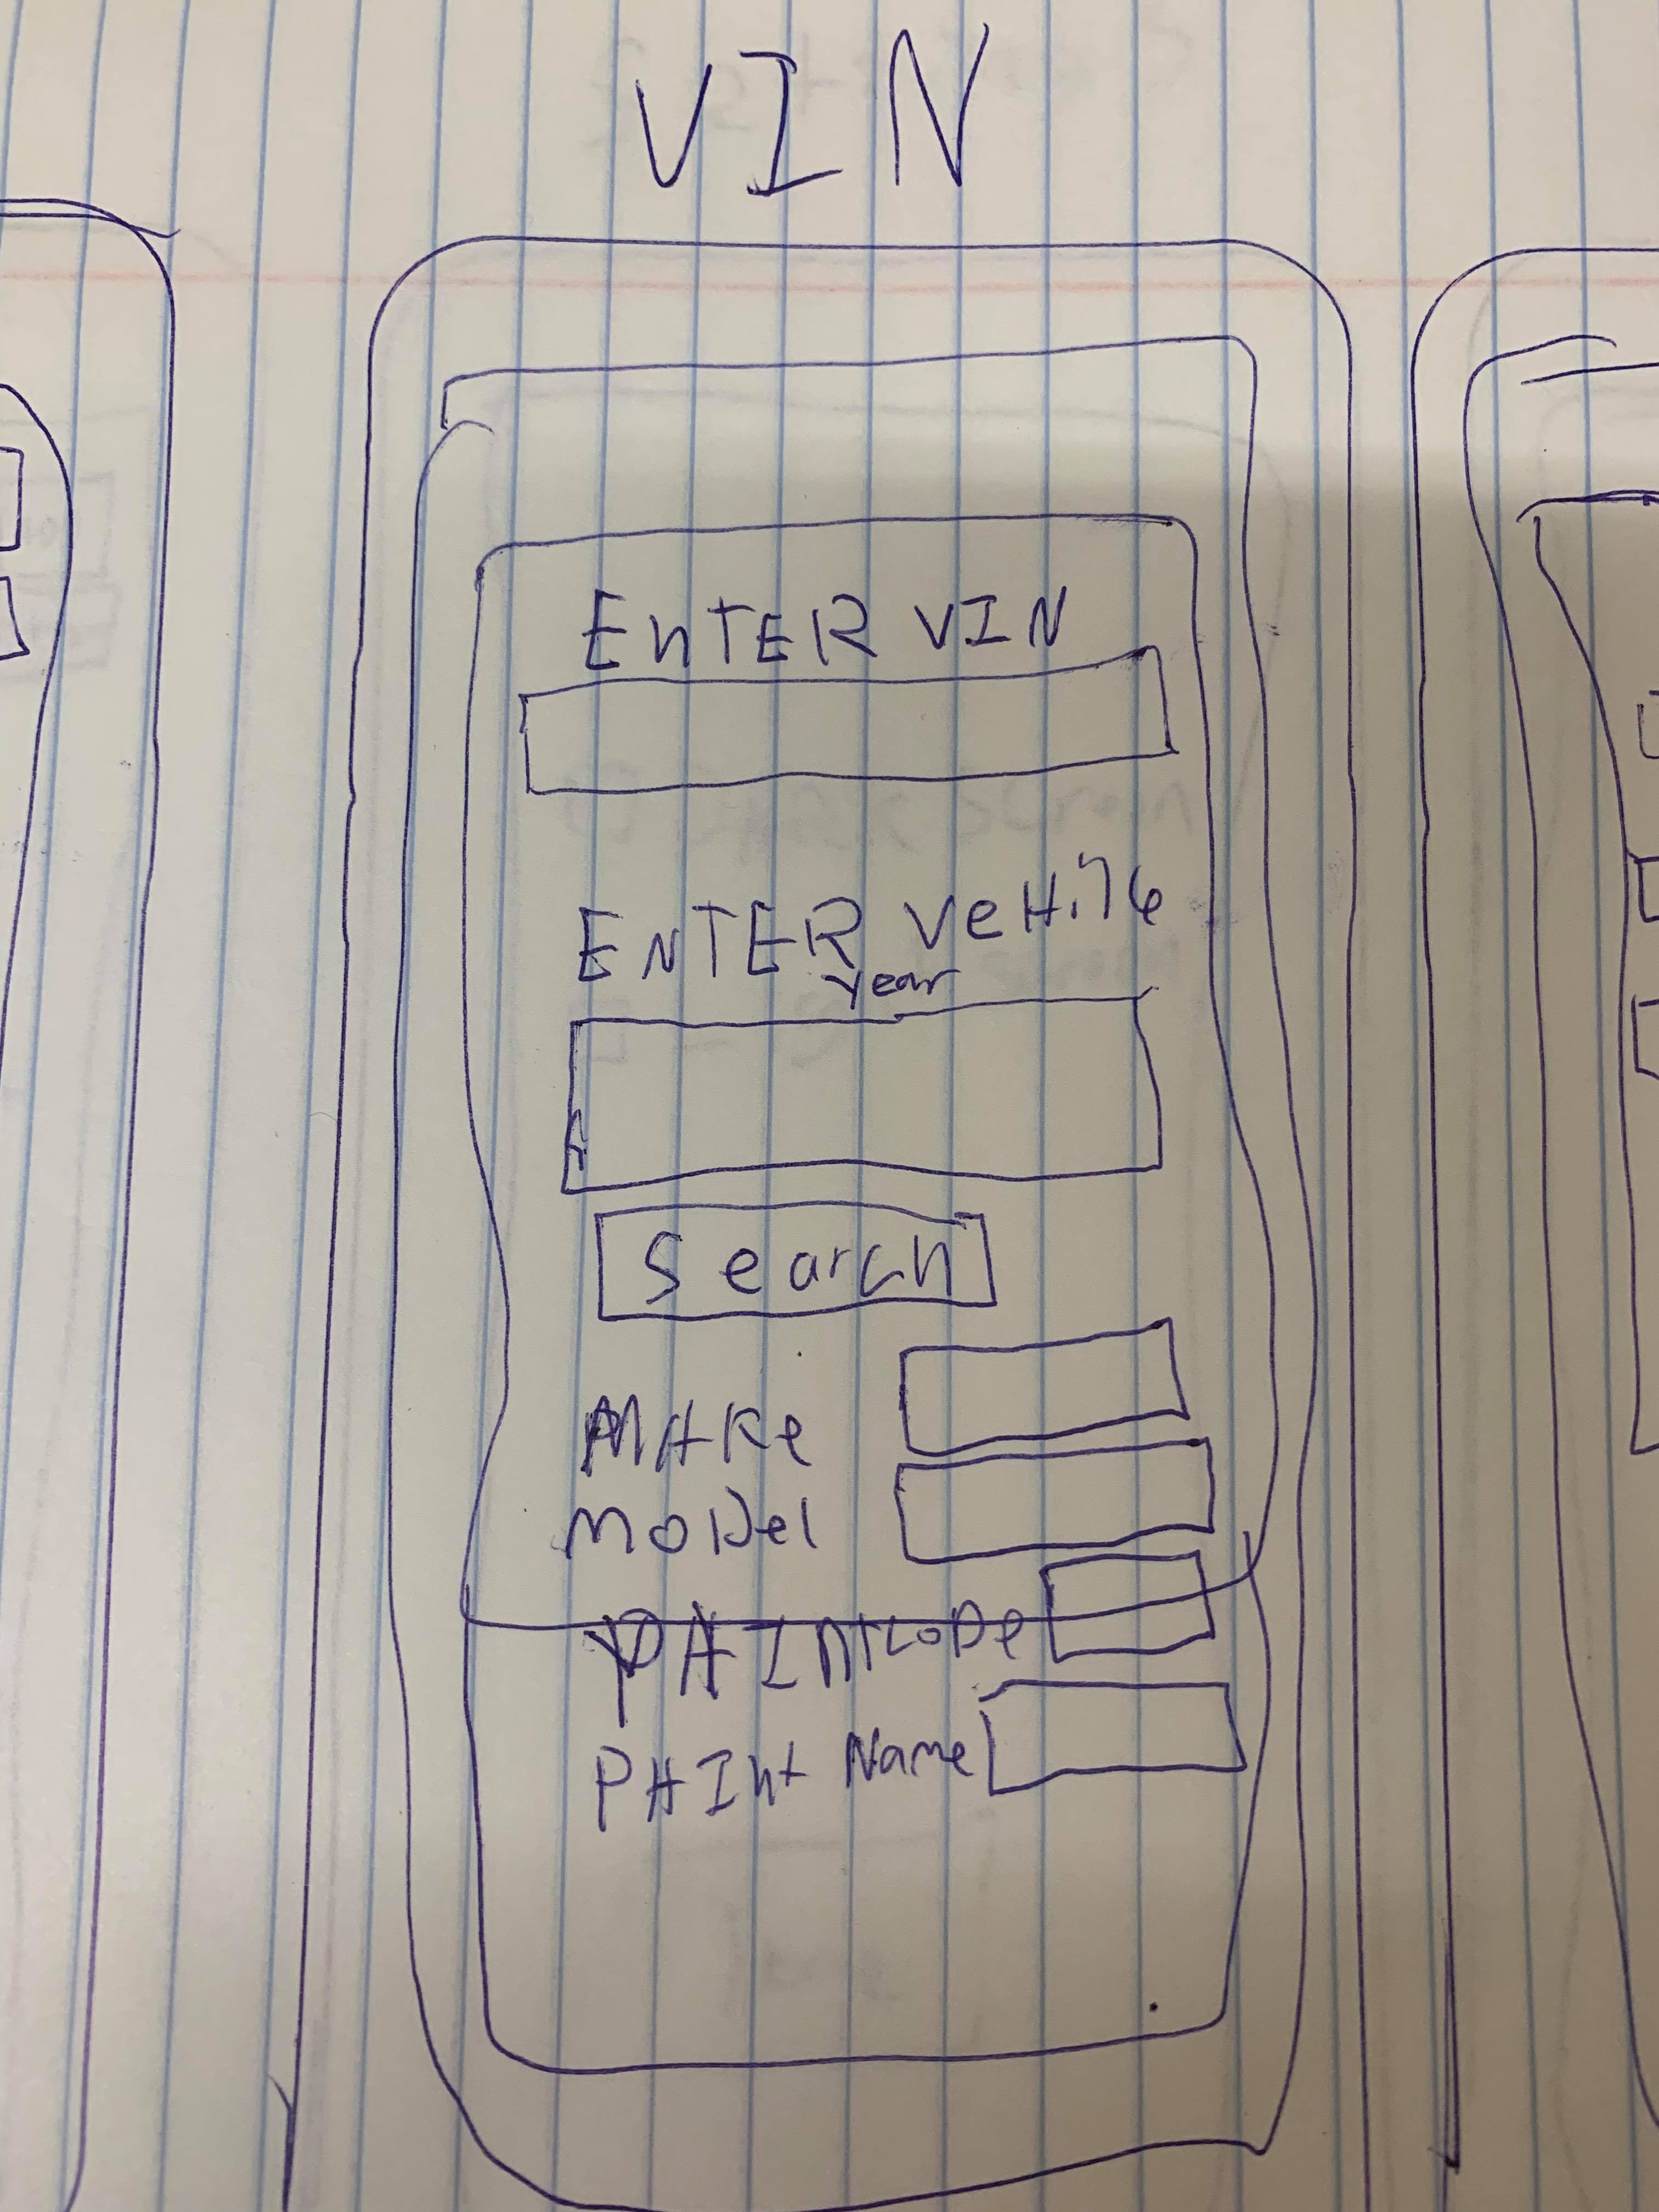 VIN
ENTER VIN
ENTER
year
Search
MAKe
MODel
PAINTCODe
PAInt Name